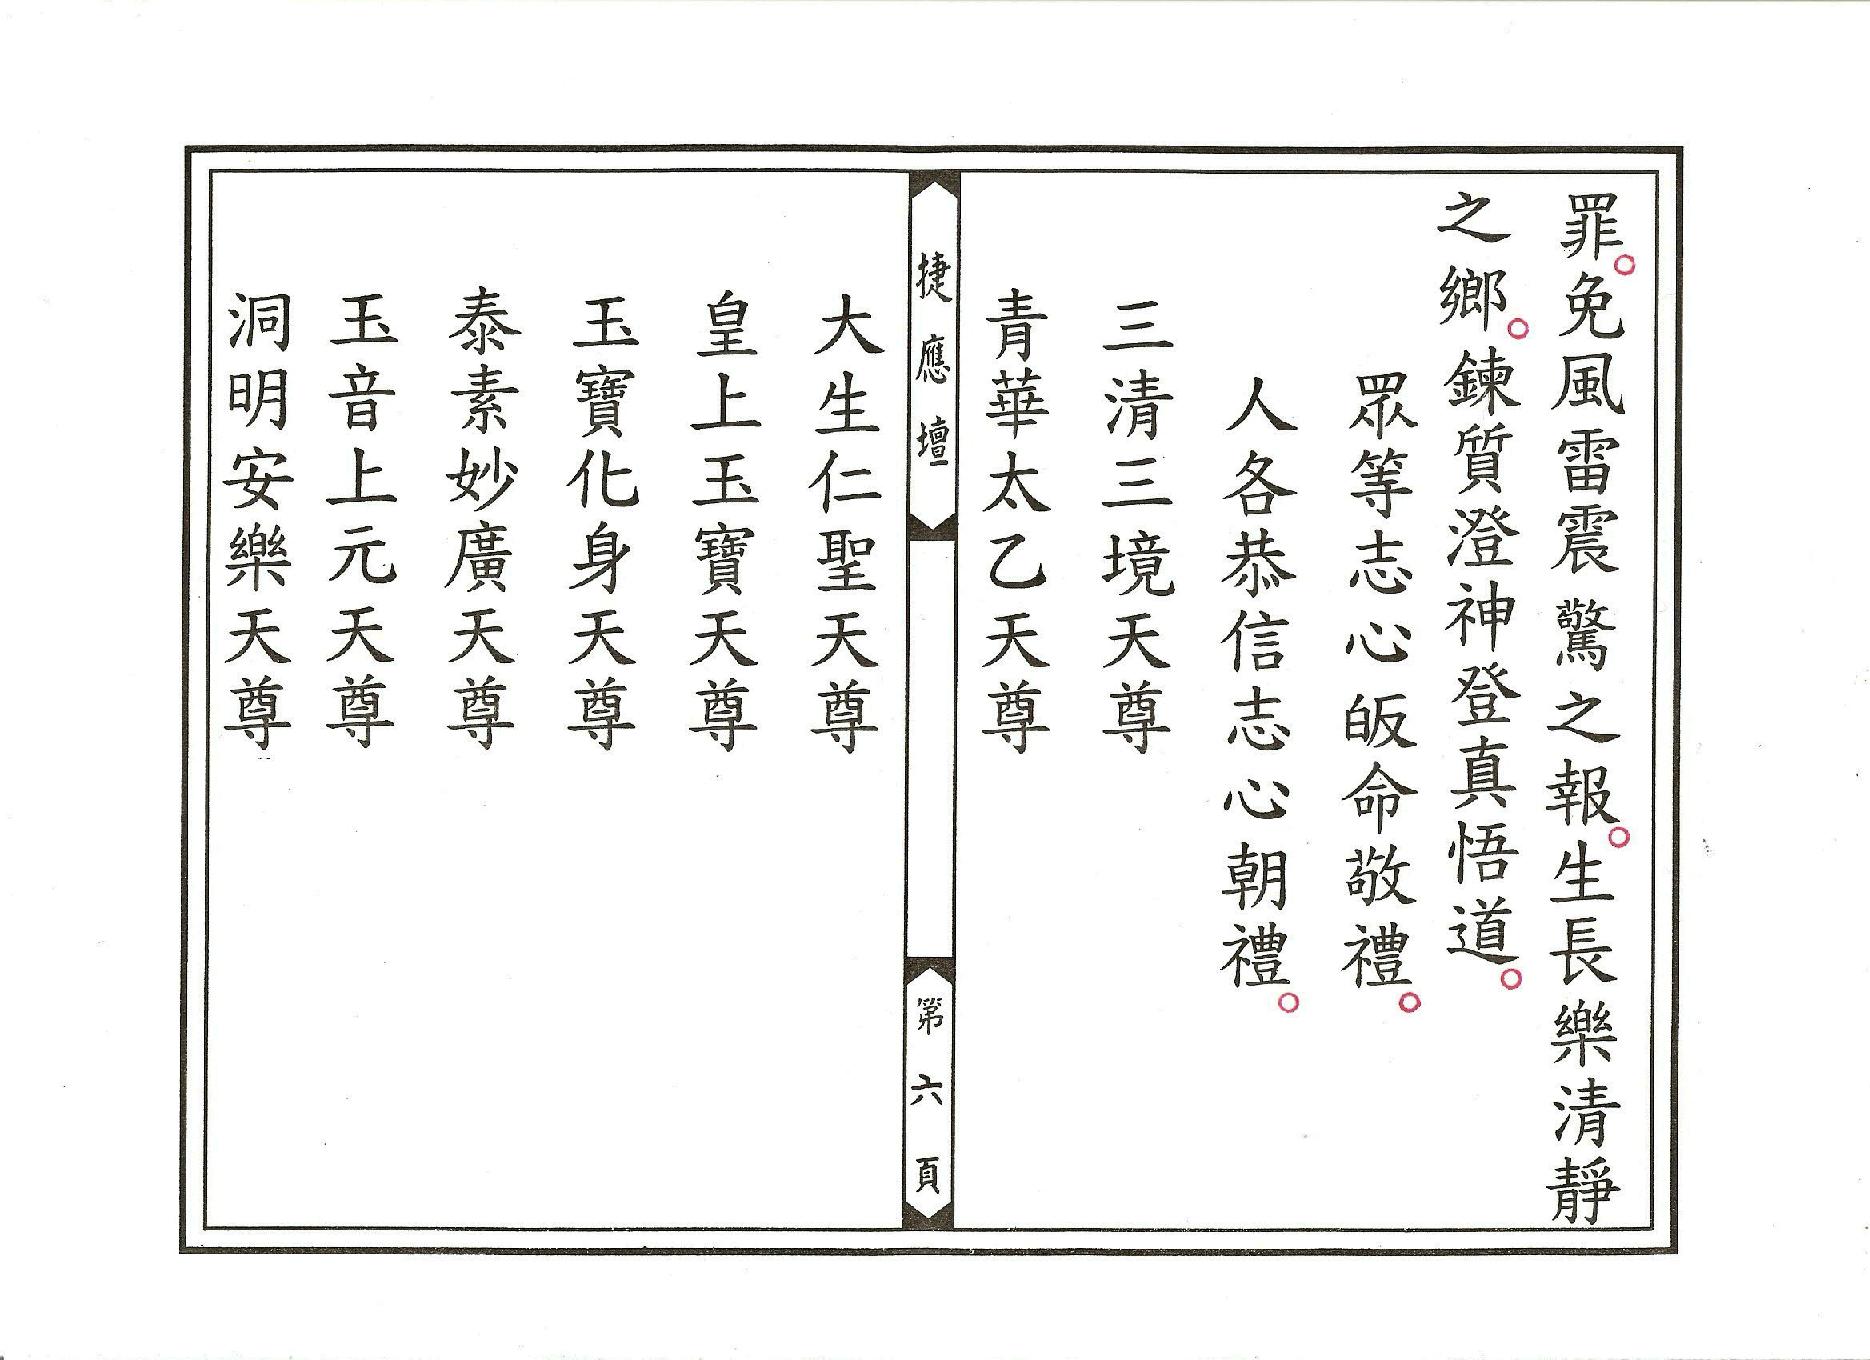 罪。免風雷震驚之報。生長樂清靜
之鄉。鍊質澄神登真悟道。
眾等志心皈命敬禮。
人各恭信志心朝禮。
三清三境天尊
青華太乙天尊
捷應壇
第六頁
大生仁聖天尊
皇上玉寶天尊
玉寶化身天尊
泰素妙廣天尊
玉音上元天尊
洞明安樂天尊